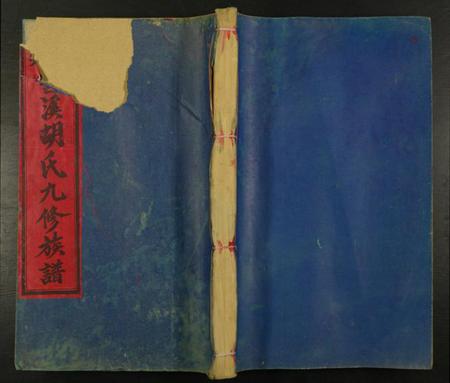 溪胡氏九修族譜